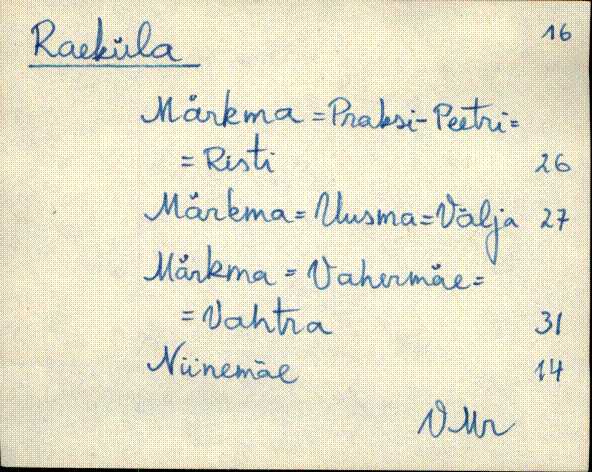 Raeküla 16
Märkma = Praksi-Peetri=
= Risti 26
Märkma = Uusma = Välja 27
Märkma = Vahermäe =
= Vahtra 31
Niinemäe 14
VMr